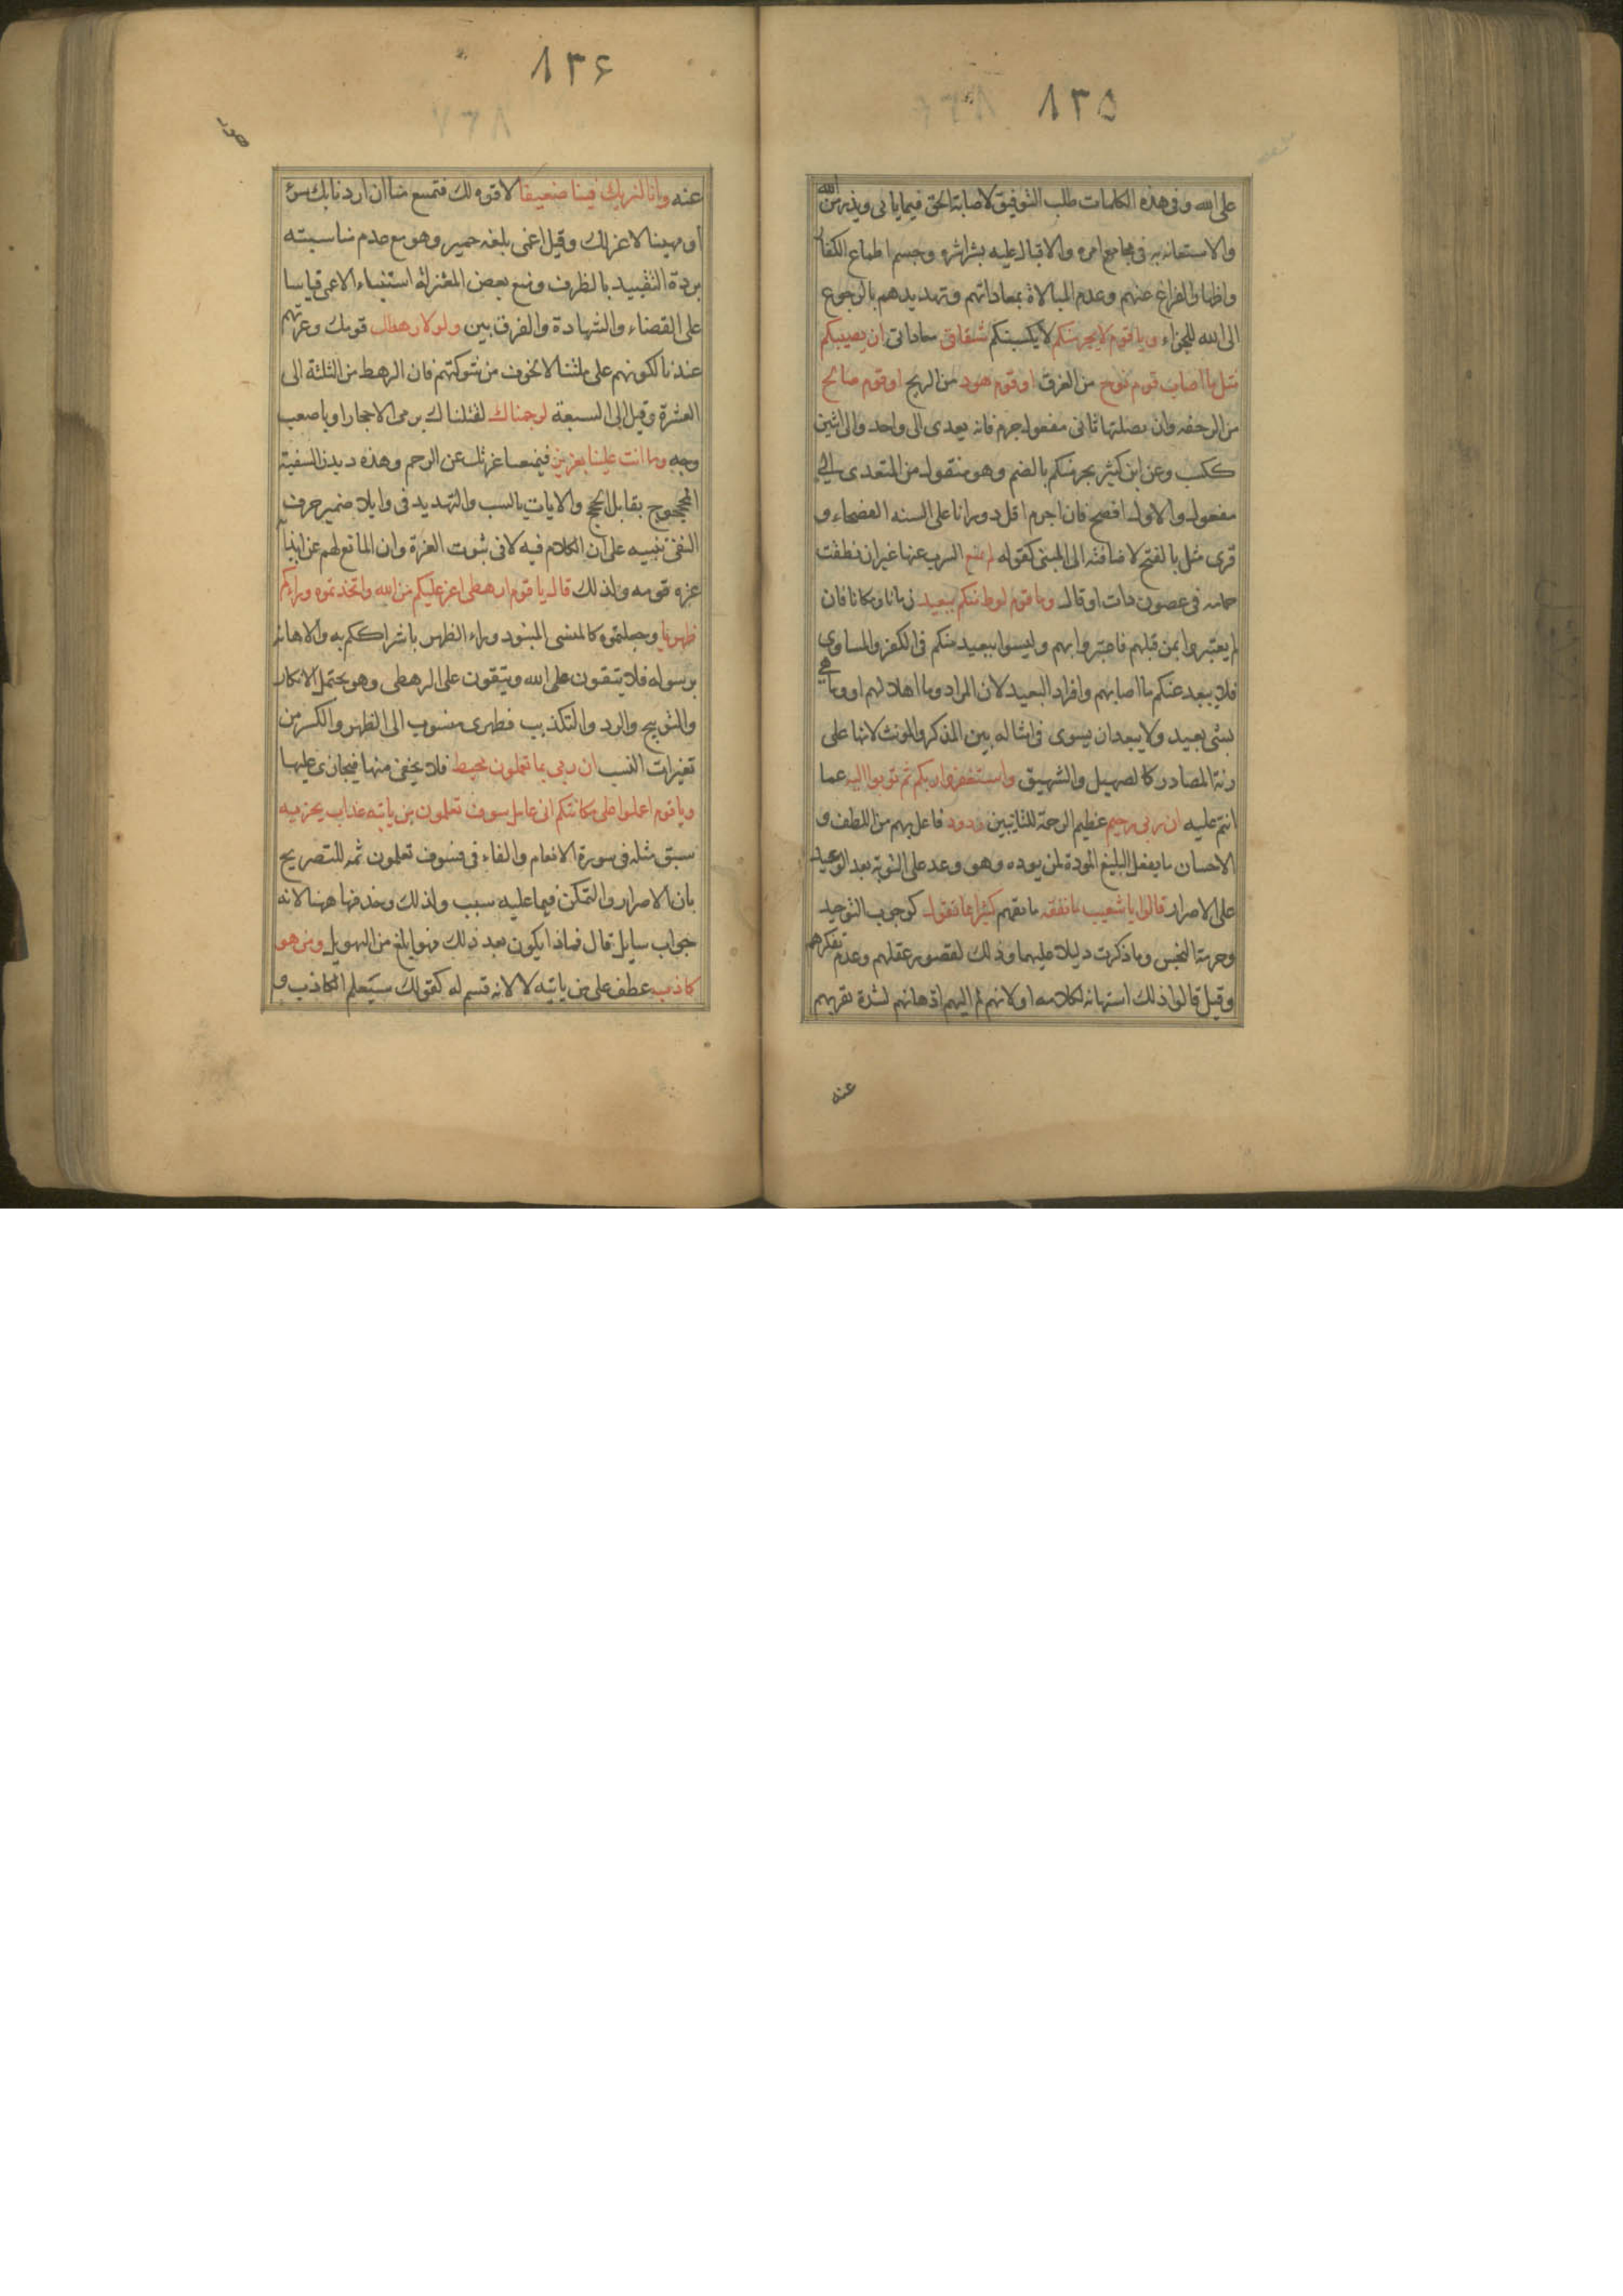 ٨٣٥
على الله وفى هذه الكلمات طلب التوفيق لاصابة الحق فيما ياتى ويذر من الله
والاستعانه به فى مجامع امره والاقبال عليه بشراشره وحسم اطماع الكفار
واظهار الفراغ عنهم وعدم المبالاة بمعاداتهم وتهديدهم بالرجوع
الى الله للجزاء ويا قوم لا يجرمنكم لا يكسبنكم شقاقى معاداتى ان يصيبكم
مثل ما اصاب قوم نوح من الغرق او قوم هود من الريح او قوم صالح
من الرجفه وان بصلتها ثانى مفعول جرم فانه يعدى الى واحد والى اثنين
ككسب وعن ابن كثير يجرمنكم بالضم وهو منقول من المتعدى الى
مفعول والاول افصح فان اجرم اقل دورانا على السنه الفصحاء و
قرى مثل بالفتح لاضافته الى المبنى كقوله لم يمنع الشرب عنها غير ان نطقت
حمامه فى غصون ذات اوقال وما قوم لوط منكم ببعيد زمانا ومكانا فان
لم يعتبروا بمن قبلهم فاعتبروا بهم وليسوا ببعيد منكم فى الكفر والمساوى
فلا يبعد عنكم ما اصابهم وافراد البعيد لان المراد وما اهلاكهم او وما هى
بشى بعيد ولا يبعد ان يسوى فى امثاله بين المذكر والمونث لانها على
زنة المصادر كالصهيل والشهيق واستغفروا ربكم ثم توبوا اليه عما
انتم عليه ان ربى رحيم عظيم الرحمة للتائبين ودود فاعل بهم من اللطف و
الاحسان ما يفعل البليغ المودة لمن يوده وهو وعد على التوبة بعد الوعيد
على الاصرار قالوا يا شعيب ما نفقه ما نفهم كثيرا مما تقول كوجوب التوحيد
وحرمة البخس وما ذكرت دليلا عليهما وذلك لقصور عقلهم وعدم تفكرهم
وقيل قالوا ذلك استهانه لكلامه او لانهم لم اليهم اذهانهم لشدة نفرتهم
عنه
٨٣۶
عنه وانا لنريك فينا ضعيفا لا قوه لك فتمتنع منا ان اردنا بك سوء
او مهينا لا عز لك وقيل اعمى بلغه حمير وهو مع عدم مناسبته
يرده التقييد بالظرف ومنع بعض المعتزلة استنباء الاعمى قياسا
على القضاء والشهادة والفرق بين ولولا رهطك قومك وعزتهم
عندنا لكونهم على ملتنا لا لخوف من شوكتهم فان الرهط من الثلثة الى
العشرة وقيل الى السبعة لرجمناك لقتلناك برمى الاحجار او باصعب
وجه وما انت علينا بعزيز فيمنعنا عزتك عن الرجم وهذه ديدن السفيه
المحجوج بقابل الحجج والايات بالسب والتهديد فى وايلا ضمير حرف
النفى تنبيه على ان الكلام فيه لا فى ثبوت العزة وان المانع لهم عن ايذائه
عزه قومه ولذلك قال يا قوم ارهطى اعز عليكم من الله واتخذتموه وراءكم
ظهريا وجعلتموه كالمنسى المنبوذ وراء الظهر باشراككم به والاهانة
برسوله فلا يتقون على الله ويتقون على الرهطى وهو يحتمل الانكار
والتوبيخ والرد والتكذيب فظهرى منسوب الى الظهر والكسر من
تغيرات النسب ان ربى بما تعملون محيط فلا يخفى منها فيجازى عليها
ويا قوم اعملوا على مكانتكم انى عامل سوف تعلمون من ياتيه عذاب يخزيه
سبق مثله فى سورة الانعام والفاء فى فسوف تعلمون ثمه للتصريح
بان الاصرار والتمكن فيما عليه سبب ولذلك وحذفها ههنا لانه
جواب سايل قال فماذا يكون بعد ذلك فهو ابلغ من التهويل ومن هو
كاذب عطف على من ياتيه لا لانه قسيم له كقولك ستعلم الكاذب و